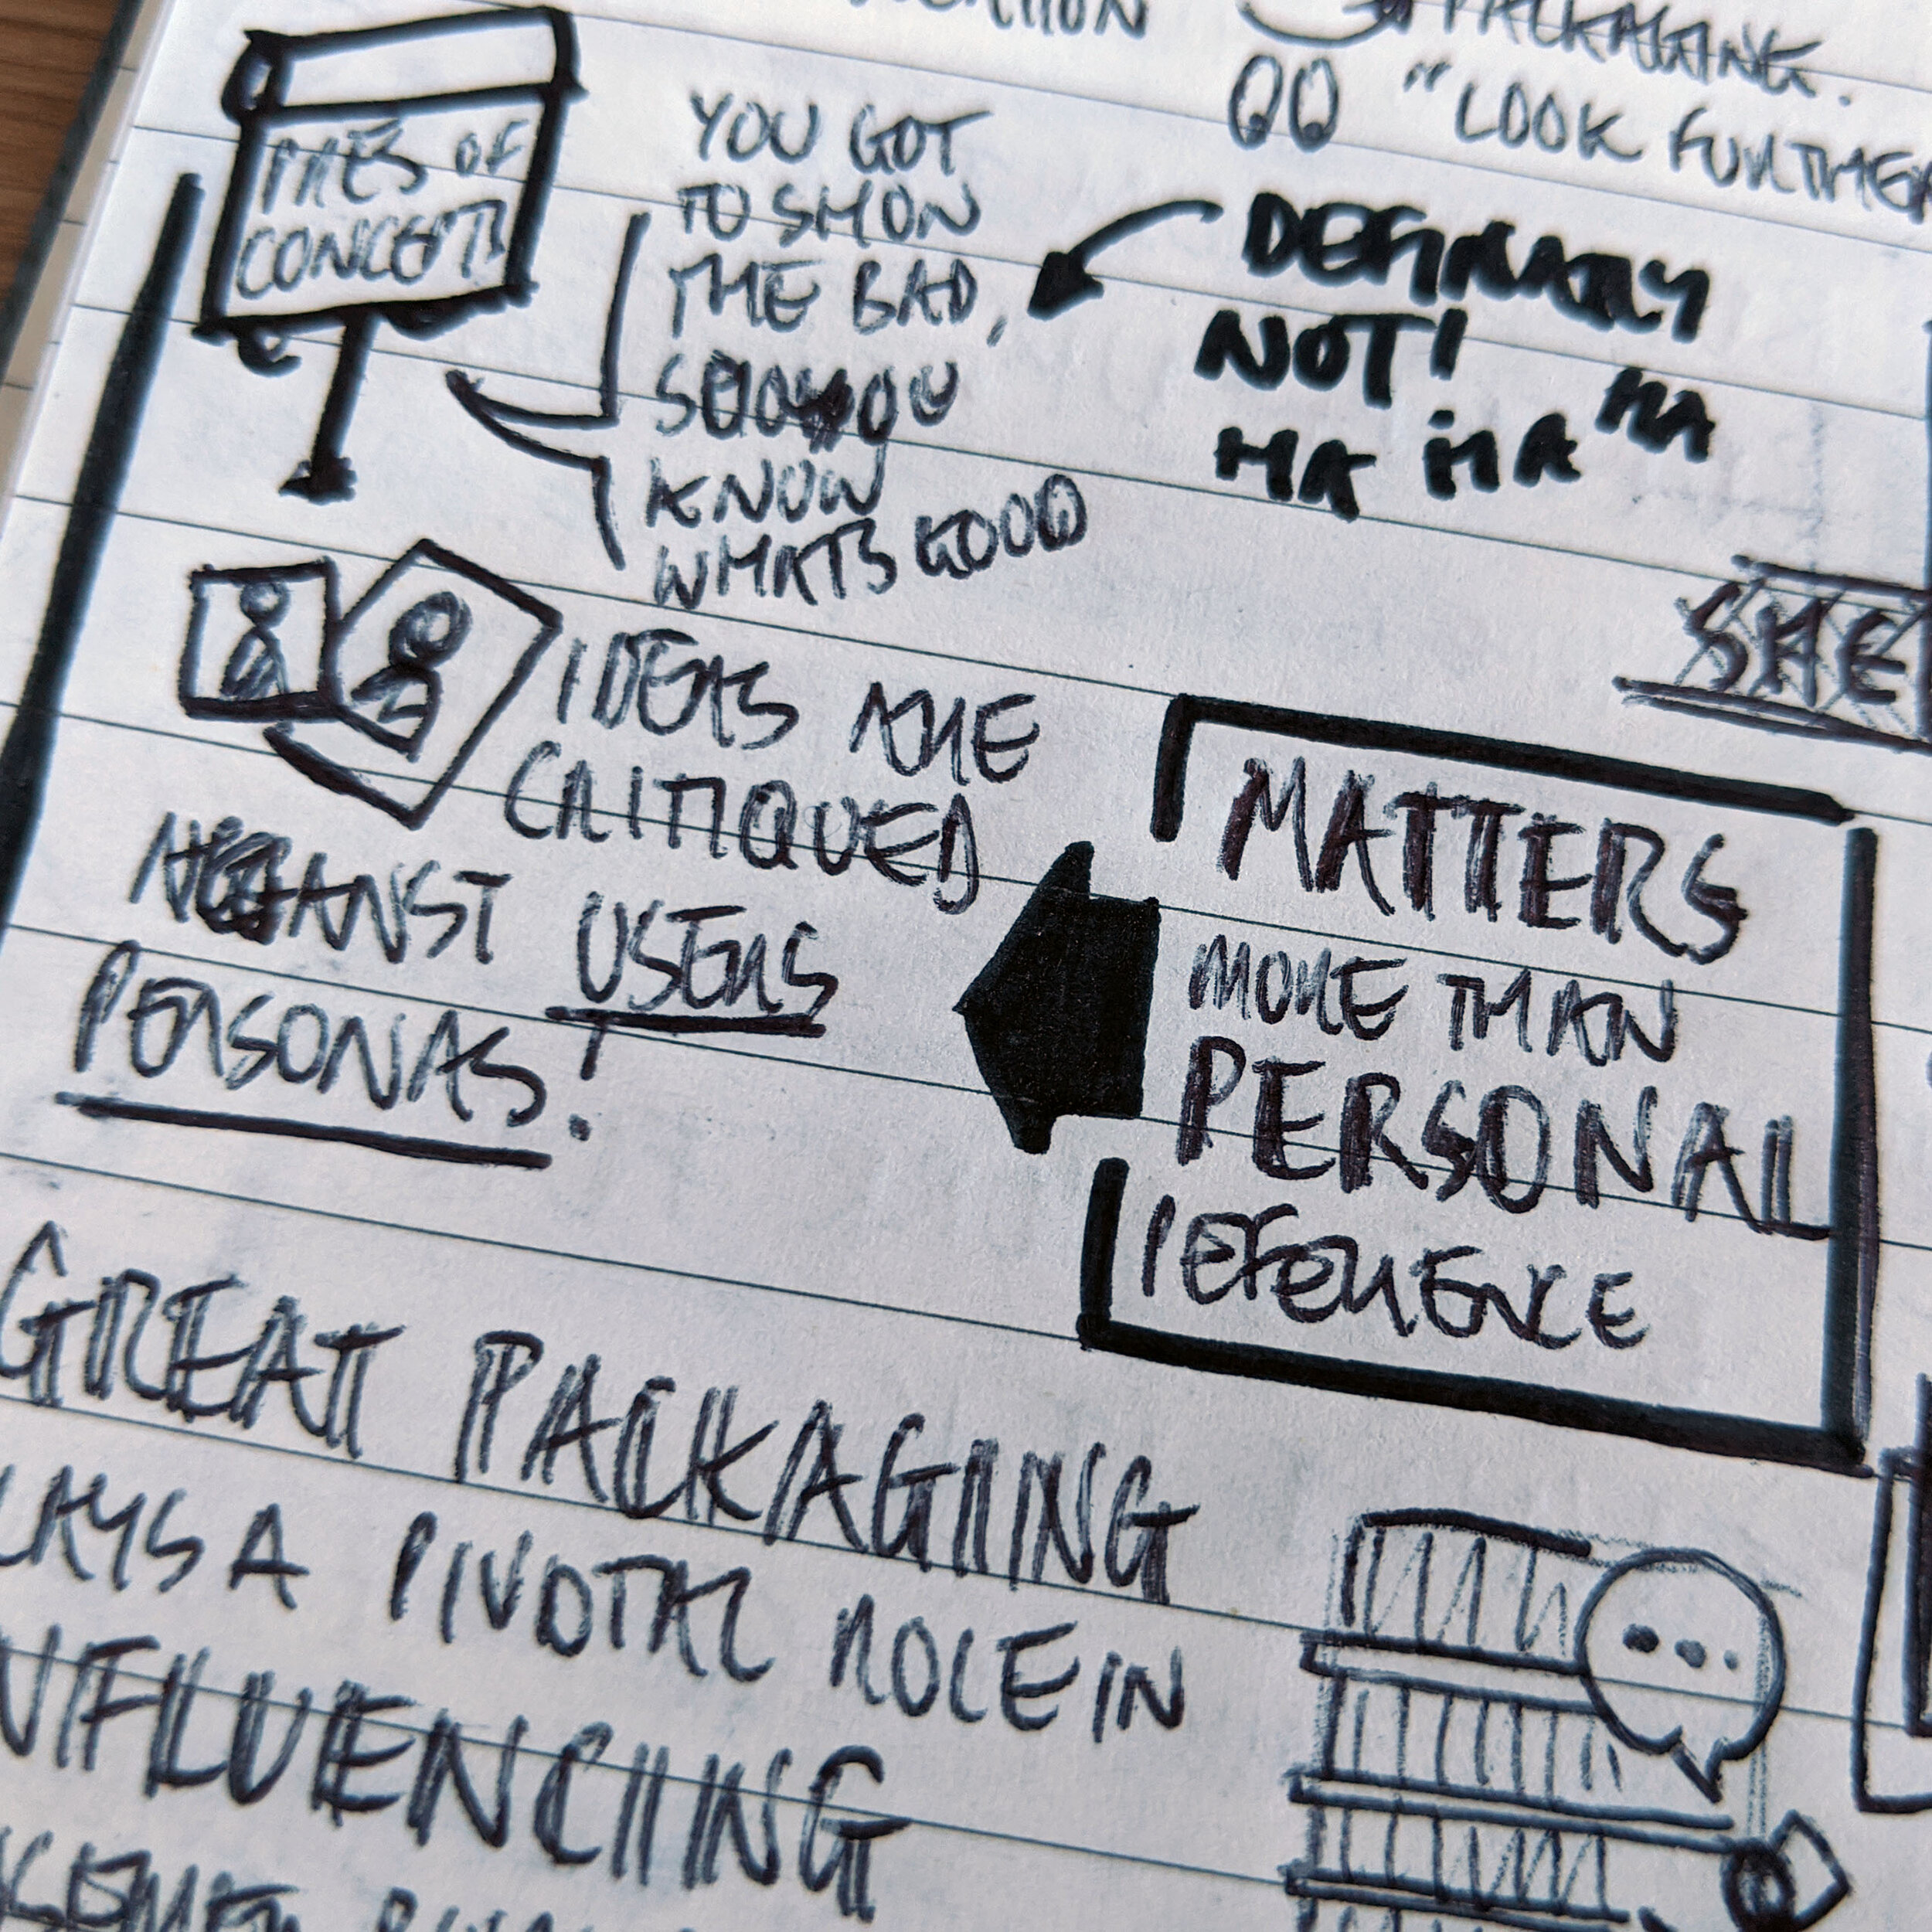 PACKAGING.
"LOOK FURTHER
PRES OF
CONCEPTS
YOU GOT
TO SHOW
THE BAD,
SO YOU
KNOW
WHATS GOOD
DEFINATLY
NOT!
HA HA HA
SHE
IDEAS ARE
CRITIQUED
AGAINST USERS
PERSONAS!
MATTERS
MORE THAN
PERSONAL
PEFERENCE
GREAT PACKAGING
LAYS A PIVOTAL ROLE IN
NFLUENCING